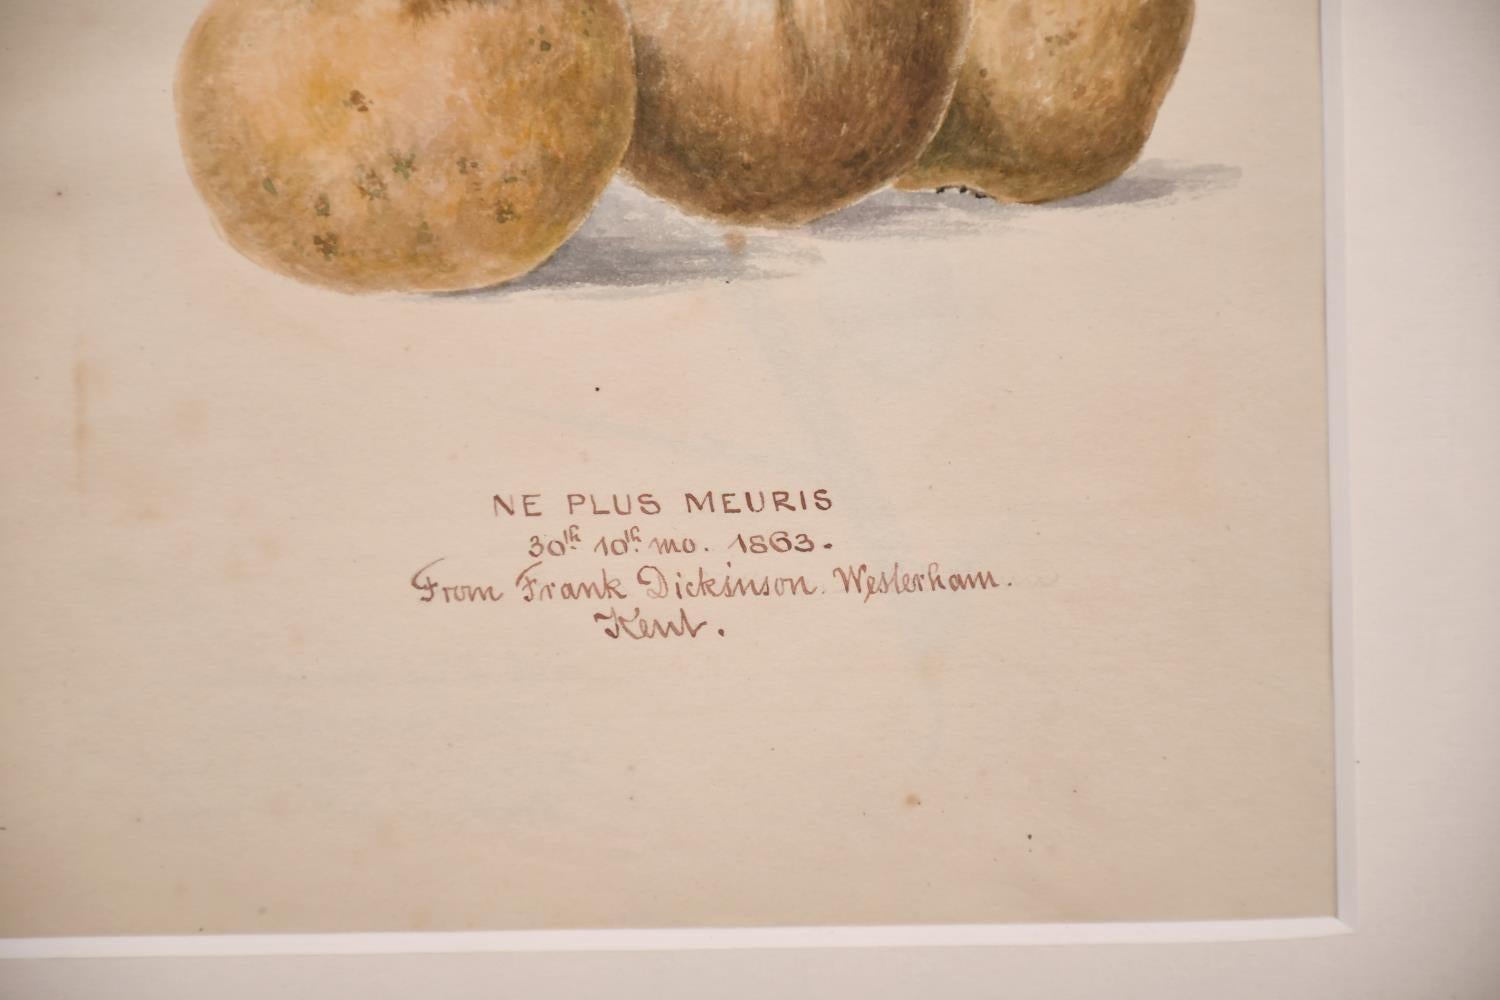 NE PLUS MEURIS
30th 10th mo. 1863.
From Frank Dickinson. Westerham.
Kent.